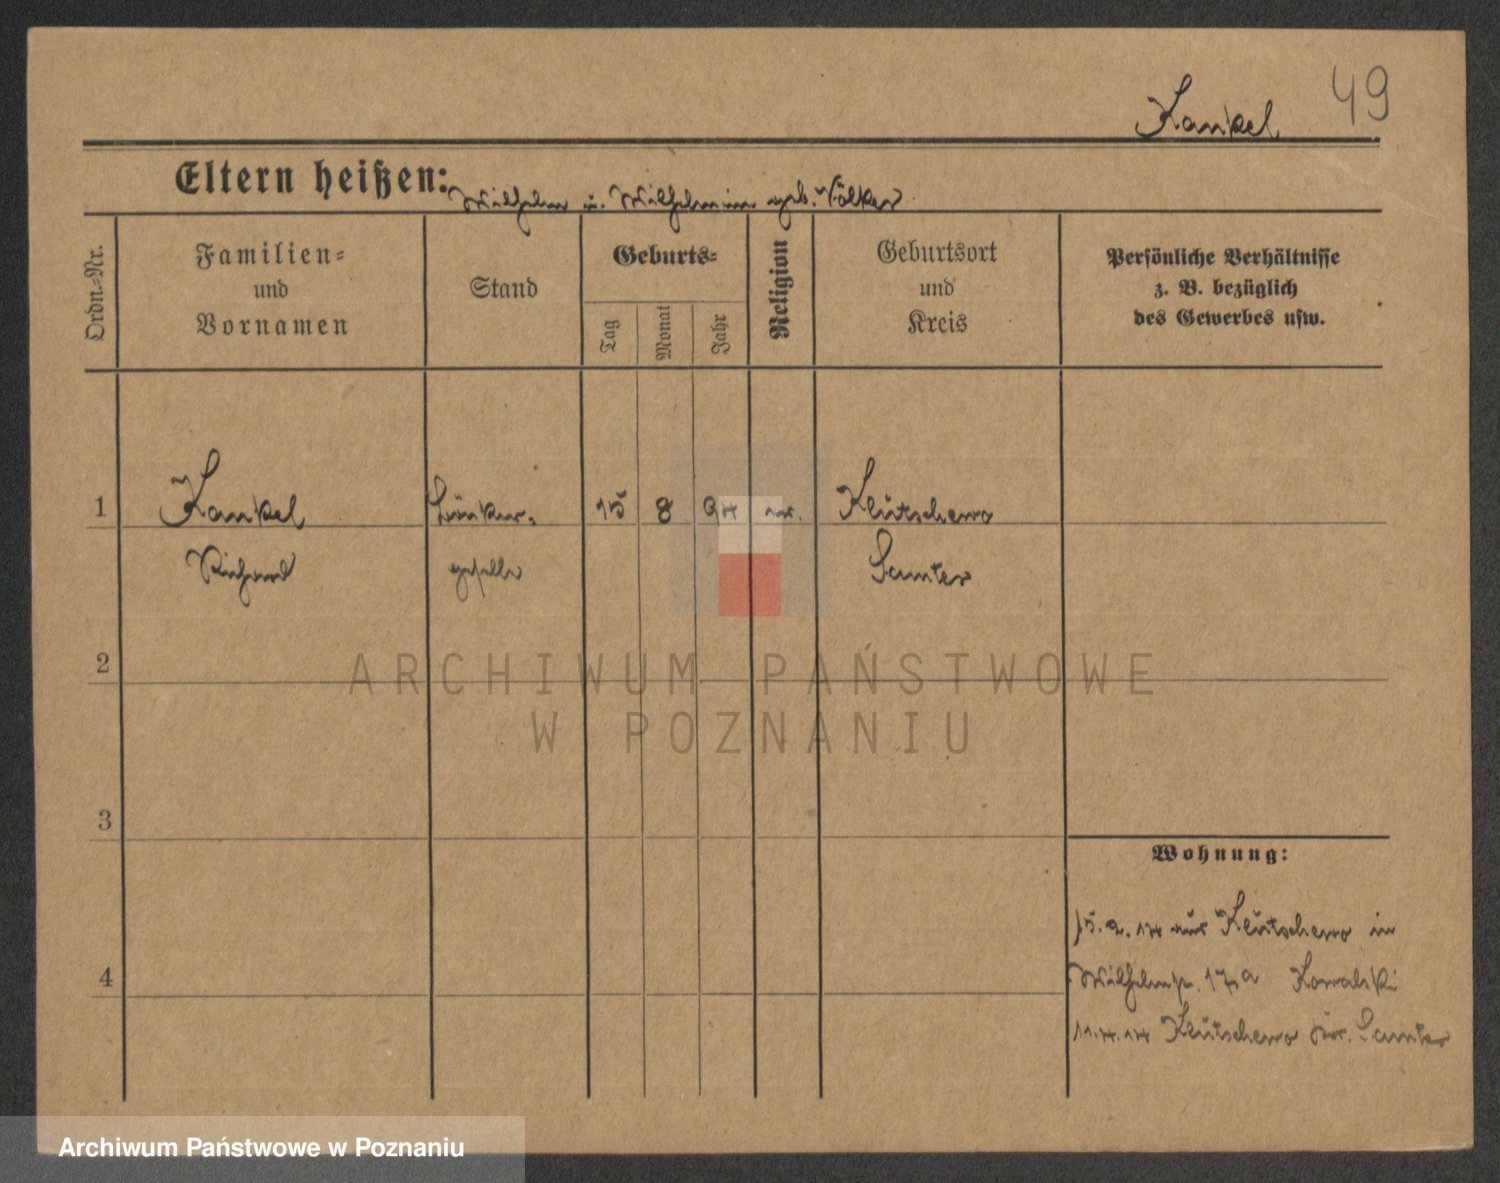 49
Kankel
Eltern heißen: Wilhelm u. Wilhelmine geb. Völker
Ordn.-Nr.
Familien-
und
Vornamen
Stand
Geburts-
Tag
Monat
Jahr
Religion
Geburtsort
und
Kreis
Persönliche Verhältnisse
z. B. bezüglich
des Gewerbes usw.
1 Kankel 15 8 94 Klutschewo
Richard geselle Samter
2
3
4
ARCHIWUM PAŃSTWOWE
W POZNANIU
Wohnung:
aus Klutschewo in
Wilhelmstr. 17a Kowalski
11.4.14 Klutschewo Kr. Samter
Archiwum Państwowe w Poznaniu